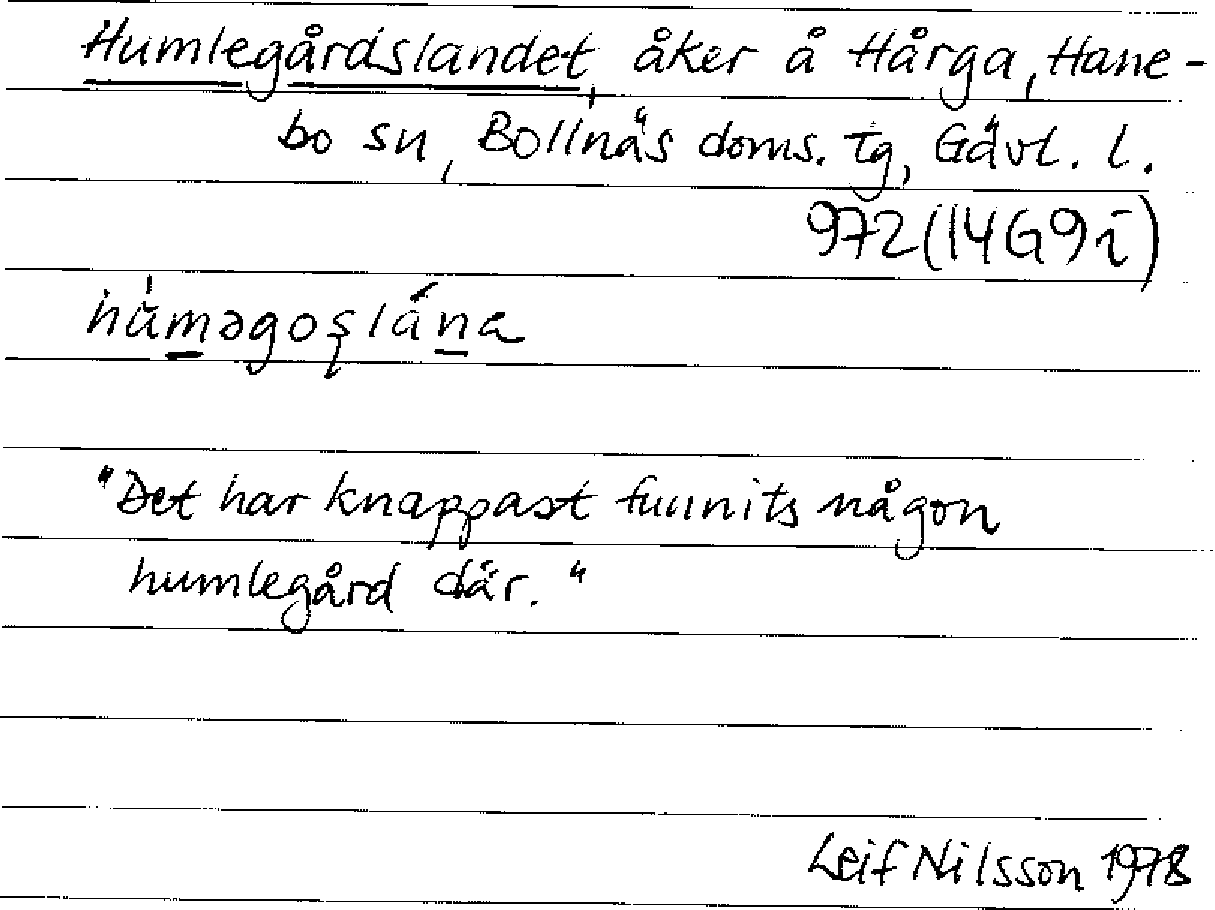 Humlegårdslandet, åker å Hårga, Hane-
bo sn, Bollnäs doms. tg, Gävl. l.
972(14G9i)
hùməgoʂlánɑ
"Det har knappast funnits någon
humlegård där."
Leif Nilsson 1978